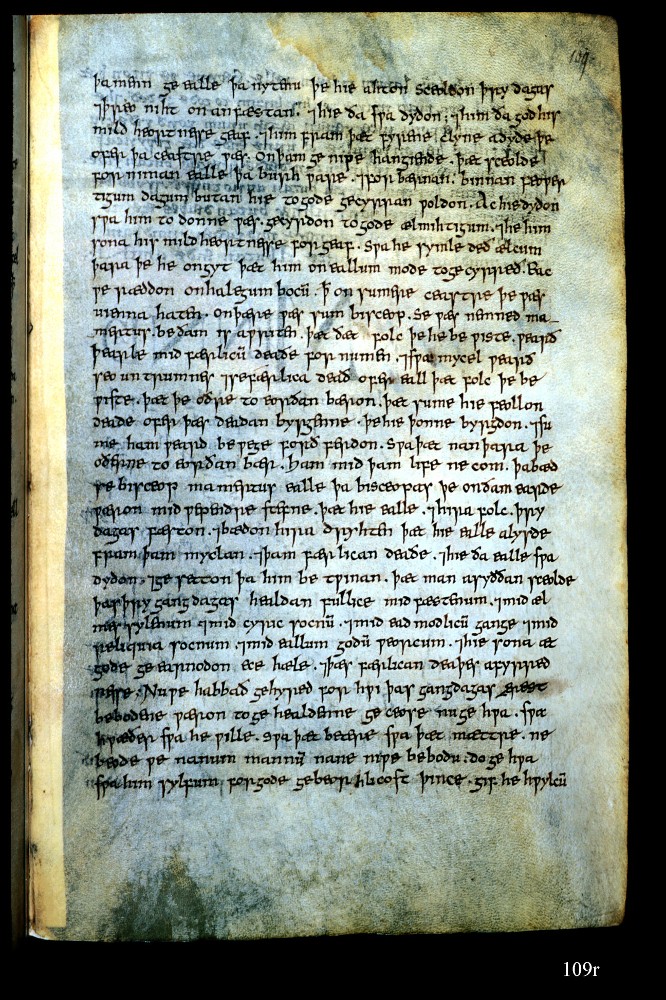 109
þam mén ge ealle þa nytenu þe hie ahton scoldon þry dagas
⁊ þreo niht on an fæstan . ⁊ hie ða sƿa dydon ; ⁊ him ða god his
mild heortnesse geaf . ⁊ him fram þæt fyrene clyne adyde þe
ofer þa ceastre ƿæs . On þam ge nipe hangiende . þæt sceolde
for niman ealle þa burh ƿare . ⁊ for bærnan . binnan feoƿer
tigum dagum butan hie to gode gecyrran ƿoldon . Ac hie dydon
sƿa him to donne ƿæs . gecyrdon to gode ælmihtigum . ⁊ he him
sona his mild heortnesse forgeaf . Sƿa he symle deð ælcum
þara þe he ongyt þæt him on eallum mode to ge cyrreð . Eac
ƿe ræddon on halegum bocū . þ̄ on sumere ceastre þe ƿæs
uienna haten . On þære ƿæs sum bisceop . Se ƿæs nemned ma
mertus . be ðam is aƿriten . þæt ðæt folc þe he be ƿiste . ƿearð
þearle mid færlicū deaðe for numen . ⁊ sƿa mycel ƿearð
seo un trumnes ⁊ se færlica deað ofer eall þæt folc þe he be
ƿiste . þæt þe oðre to eorðan bæron . þæt sume hie feollon
deade ofer þæs deadan byrgenne . þe hie þonne byrgdon . ⁊ su
me ham ƿeard be ƿege forð ferdon . Sƿa þæt nan þara þe
oðerne to eorðan bær . ham mid þam life ne com . þa bæd
se bisceop mamertus ealle þa bisceopas þe on ðam earde
ƿæron mid ƿependre stefne . þæt hie ealle . ⁊ hira folc . þry
dagas fæston . ⁊ bædon hira dryhten þæt hie ealle alysde
fram þam myclan . ⁊ þam færlican deaðe . ⁊ hie ða ealle sƿa
dydon . ⁊ ge setton þa him be tƿinan . þæt man a syððan sceolde
þas þry gang dagas healdan fullice mid fæstenum . ⁊ mid æl
mes sylenum ⁊ mid cyric socnū . ⁊ mid eað modlicū gange ⁊ mid
reliquia socnum . ⁊ mid eallum godū ƿeorcum . ⁊ hie sona æt
gode ge earnodon ece hæle . ⁊ þæs færlican deaþes afyrred
nesse . Nu ge habbað gehyred for hƿi þas gangdagas ærest
bebodene ƿæron to ge healdenne ge ceose nu ge hƿa . sƿa
hƿæðer sƿa he ƿille . sƿa þæt betere sƿa þæt mættre . ne
beode ƿe nanum mannū nane niƿe bebodu . do ge hƿa
sƿa him sylfum for gode gebeorhlicost þince . gif he hƿylcū
109r